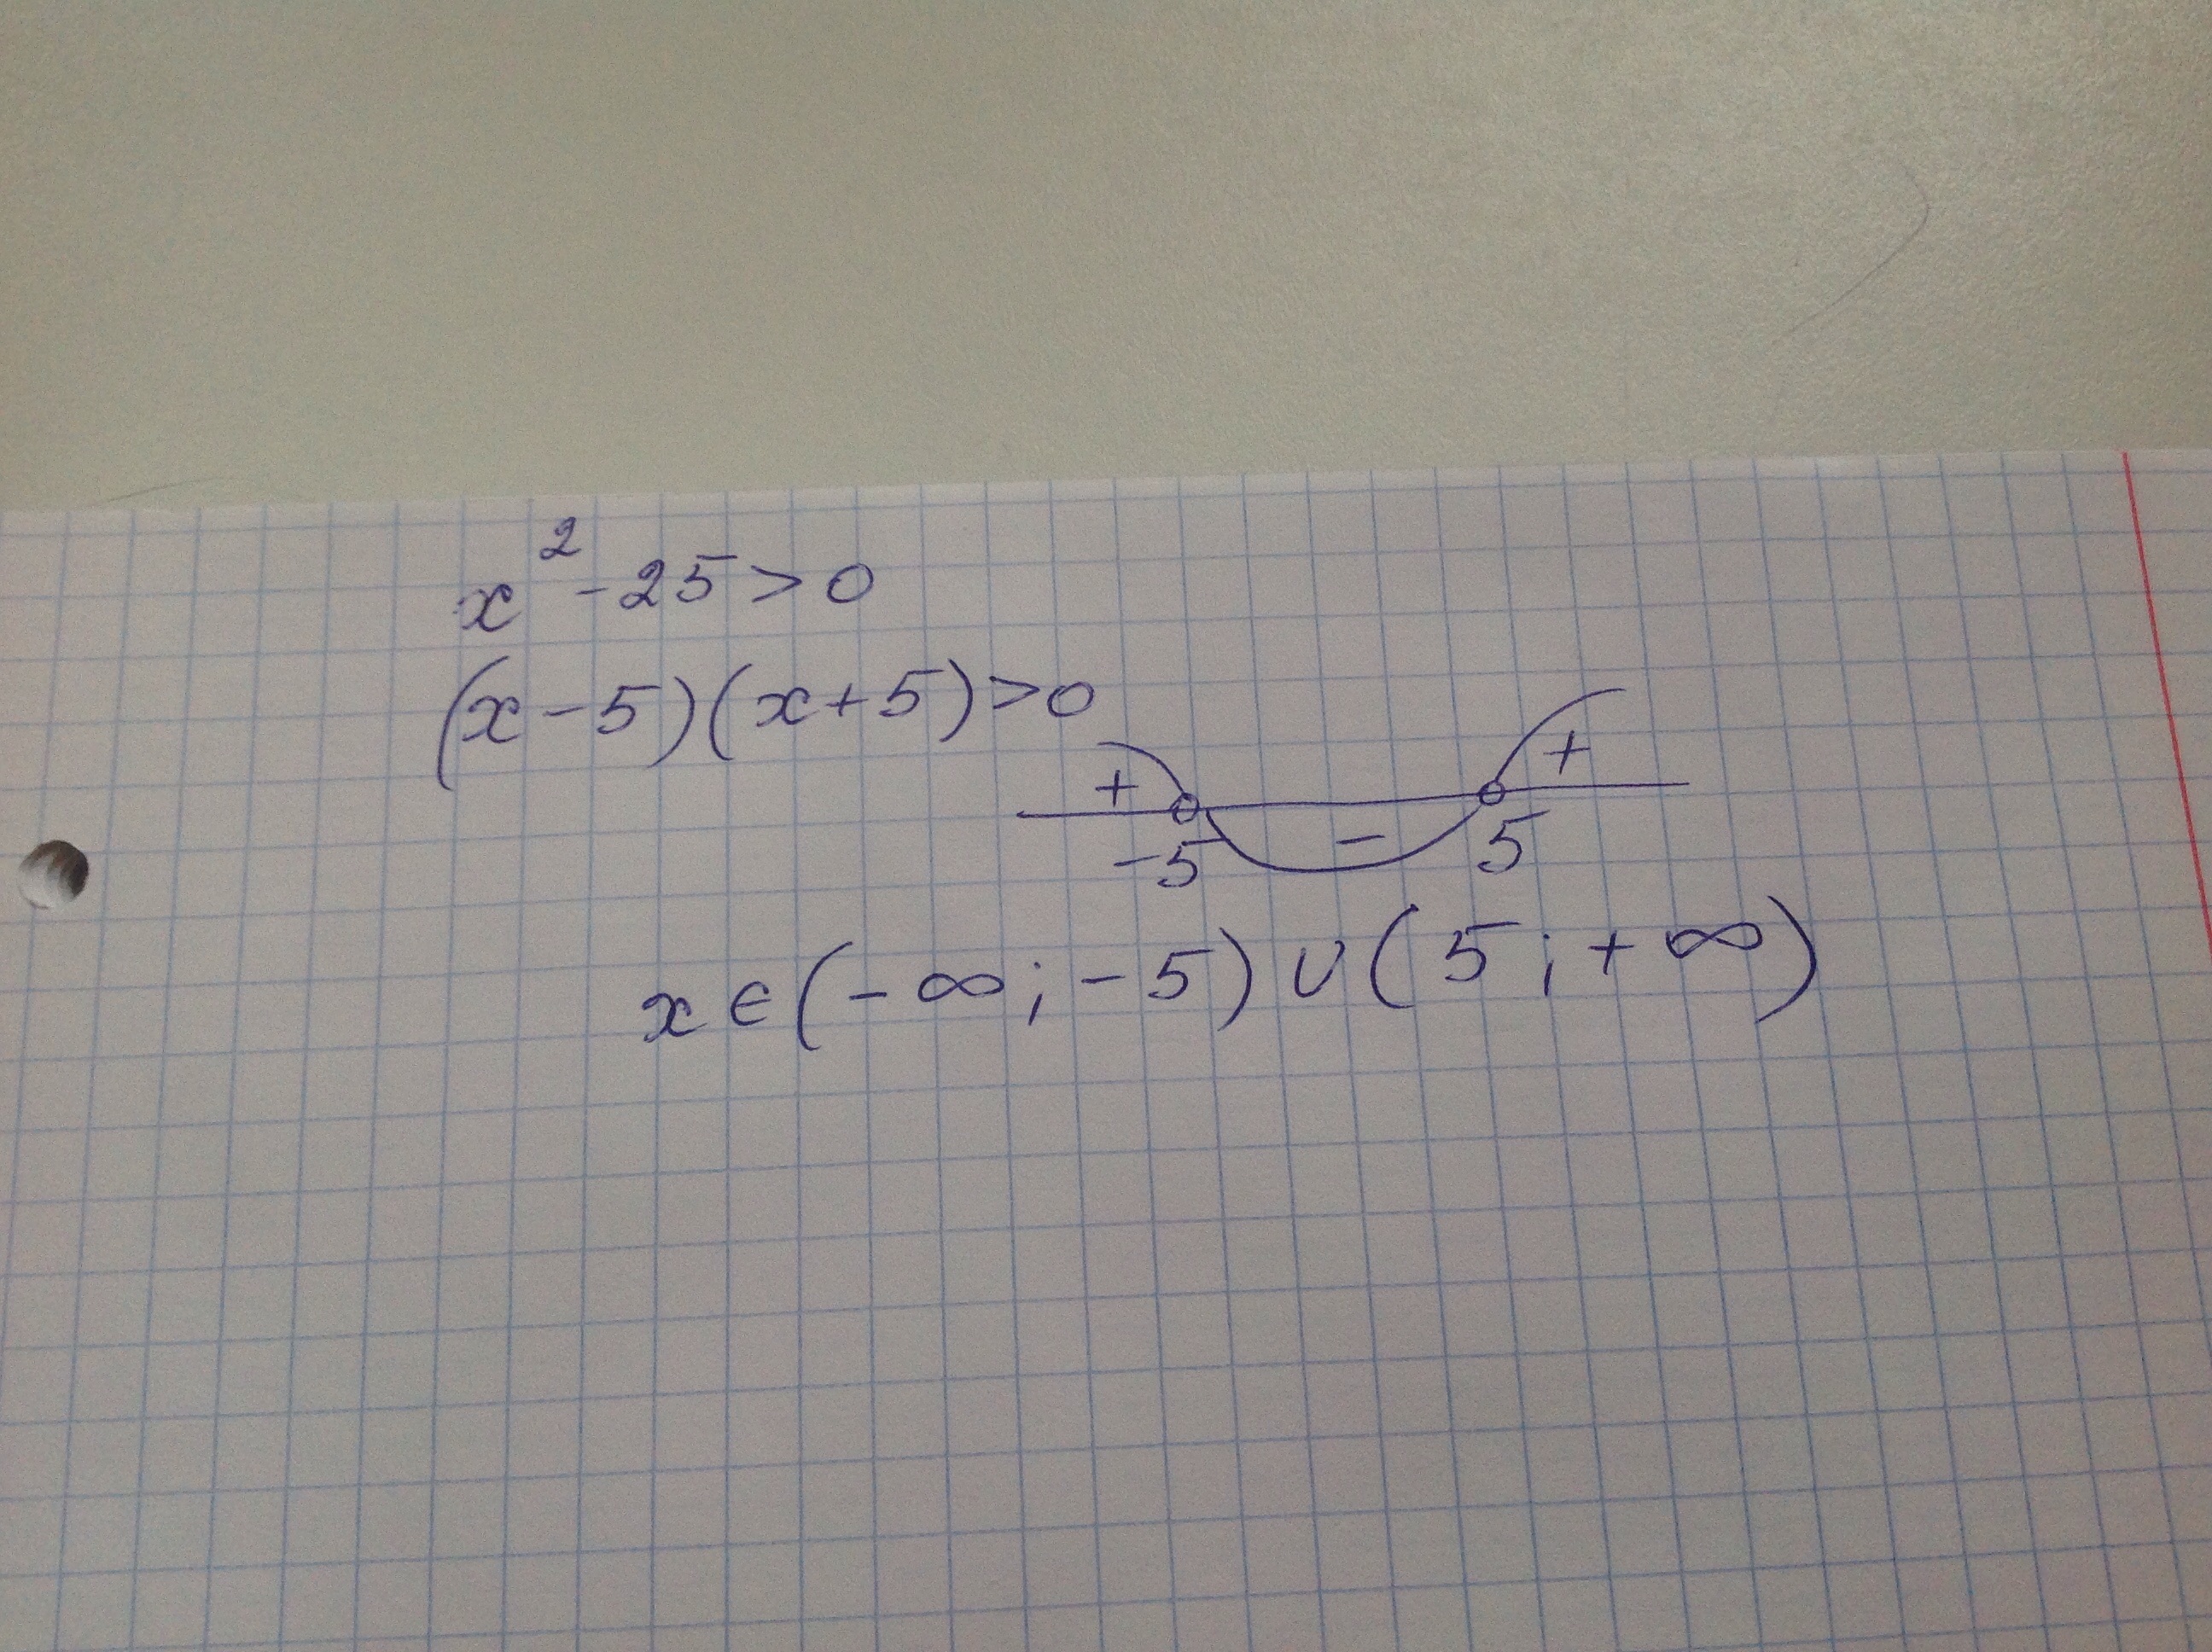 x² - 25 > 0
(x - 5)(x + 5) > 0
+ - +
-5 5
x ∈ (-∞; -5) ∪ (5; +∞)